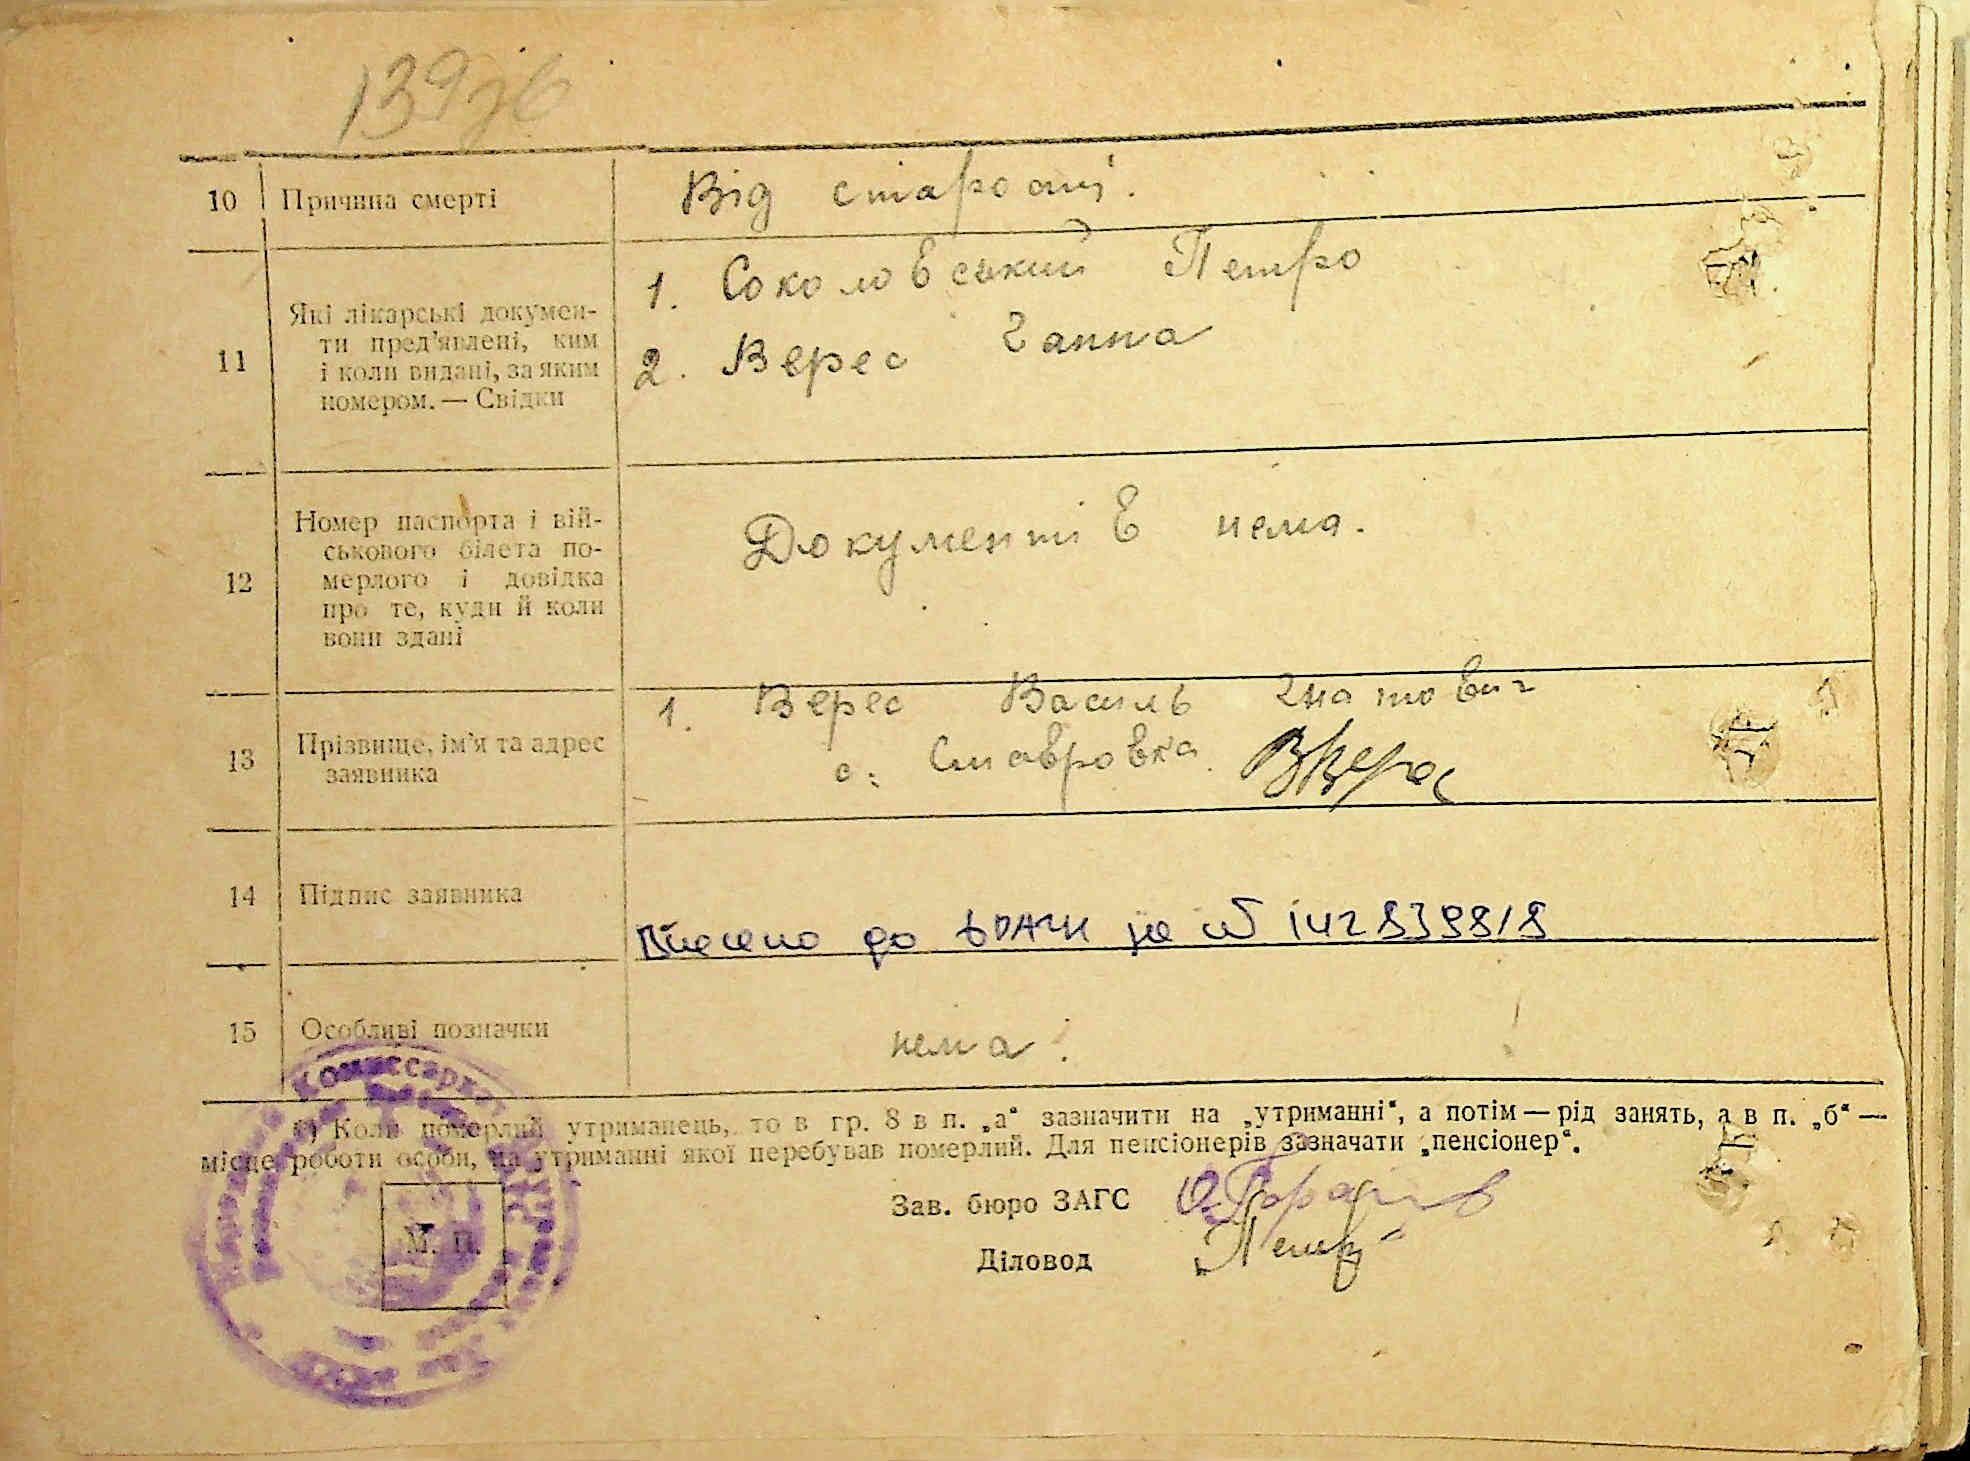 139зв
10 Причина смерті Від старості.
11 Які лікарські докумен-
ти пред'явлені, ким
і коли видані, за яким
номером. — Свідки
1. Соколовський Петро
2. Верес Ганна
12 Номер паспорта і вій-
ськового білета по-
мерлого і довідка
про те, куди й коли
вони здані
Документів нема.
13 Прізвище, ім'я та адрес
заявника
1. Верес Василь Гнатович
с. Ставровка. ВВерес
14 Підпис заявника
Внесено до ДРАЦС за №
15 Особливі позначки нема.
*) Коли померлий утриманець, то в гр. 8 в п. „а“ зазначити на „утриманні“, а потім — рід занять, а в п. „б“ —
місце роботи особи, на утриманні якої перебував померлий. Для пенсіонерів зазначати „пенсіонер“.
Зав. бюро ЗАГС
Діловод
М. П.
Комиссариат